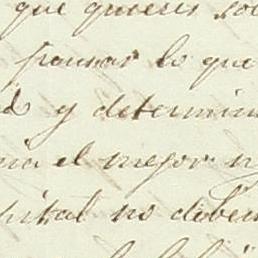 que quieres
pensar lo que
y determin
el mejor
pital no deben